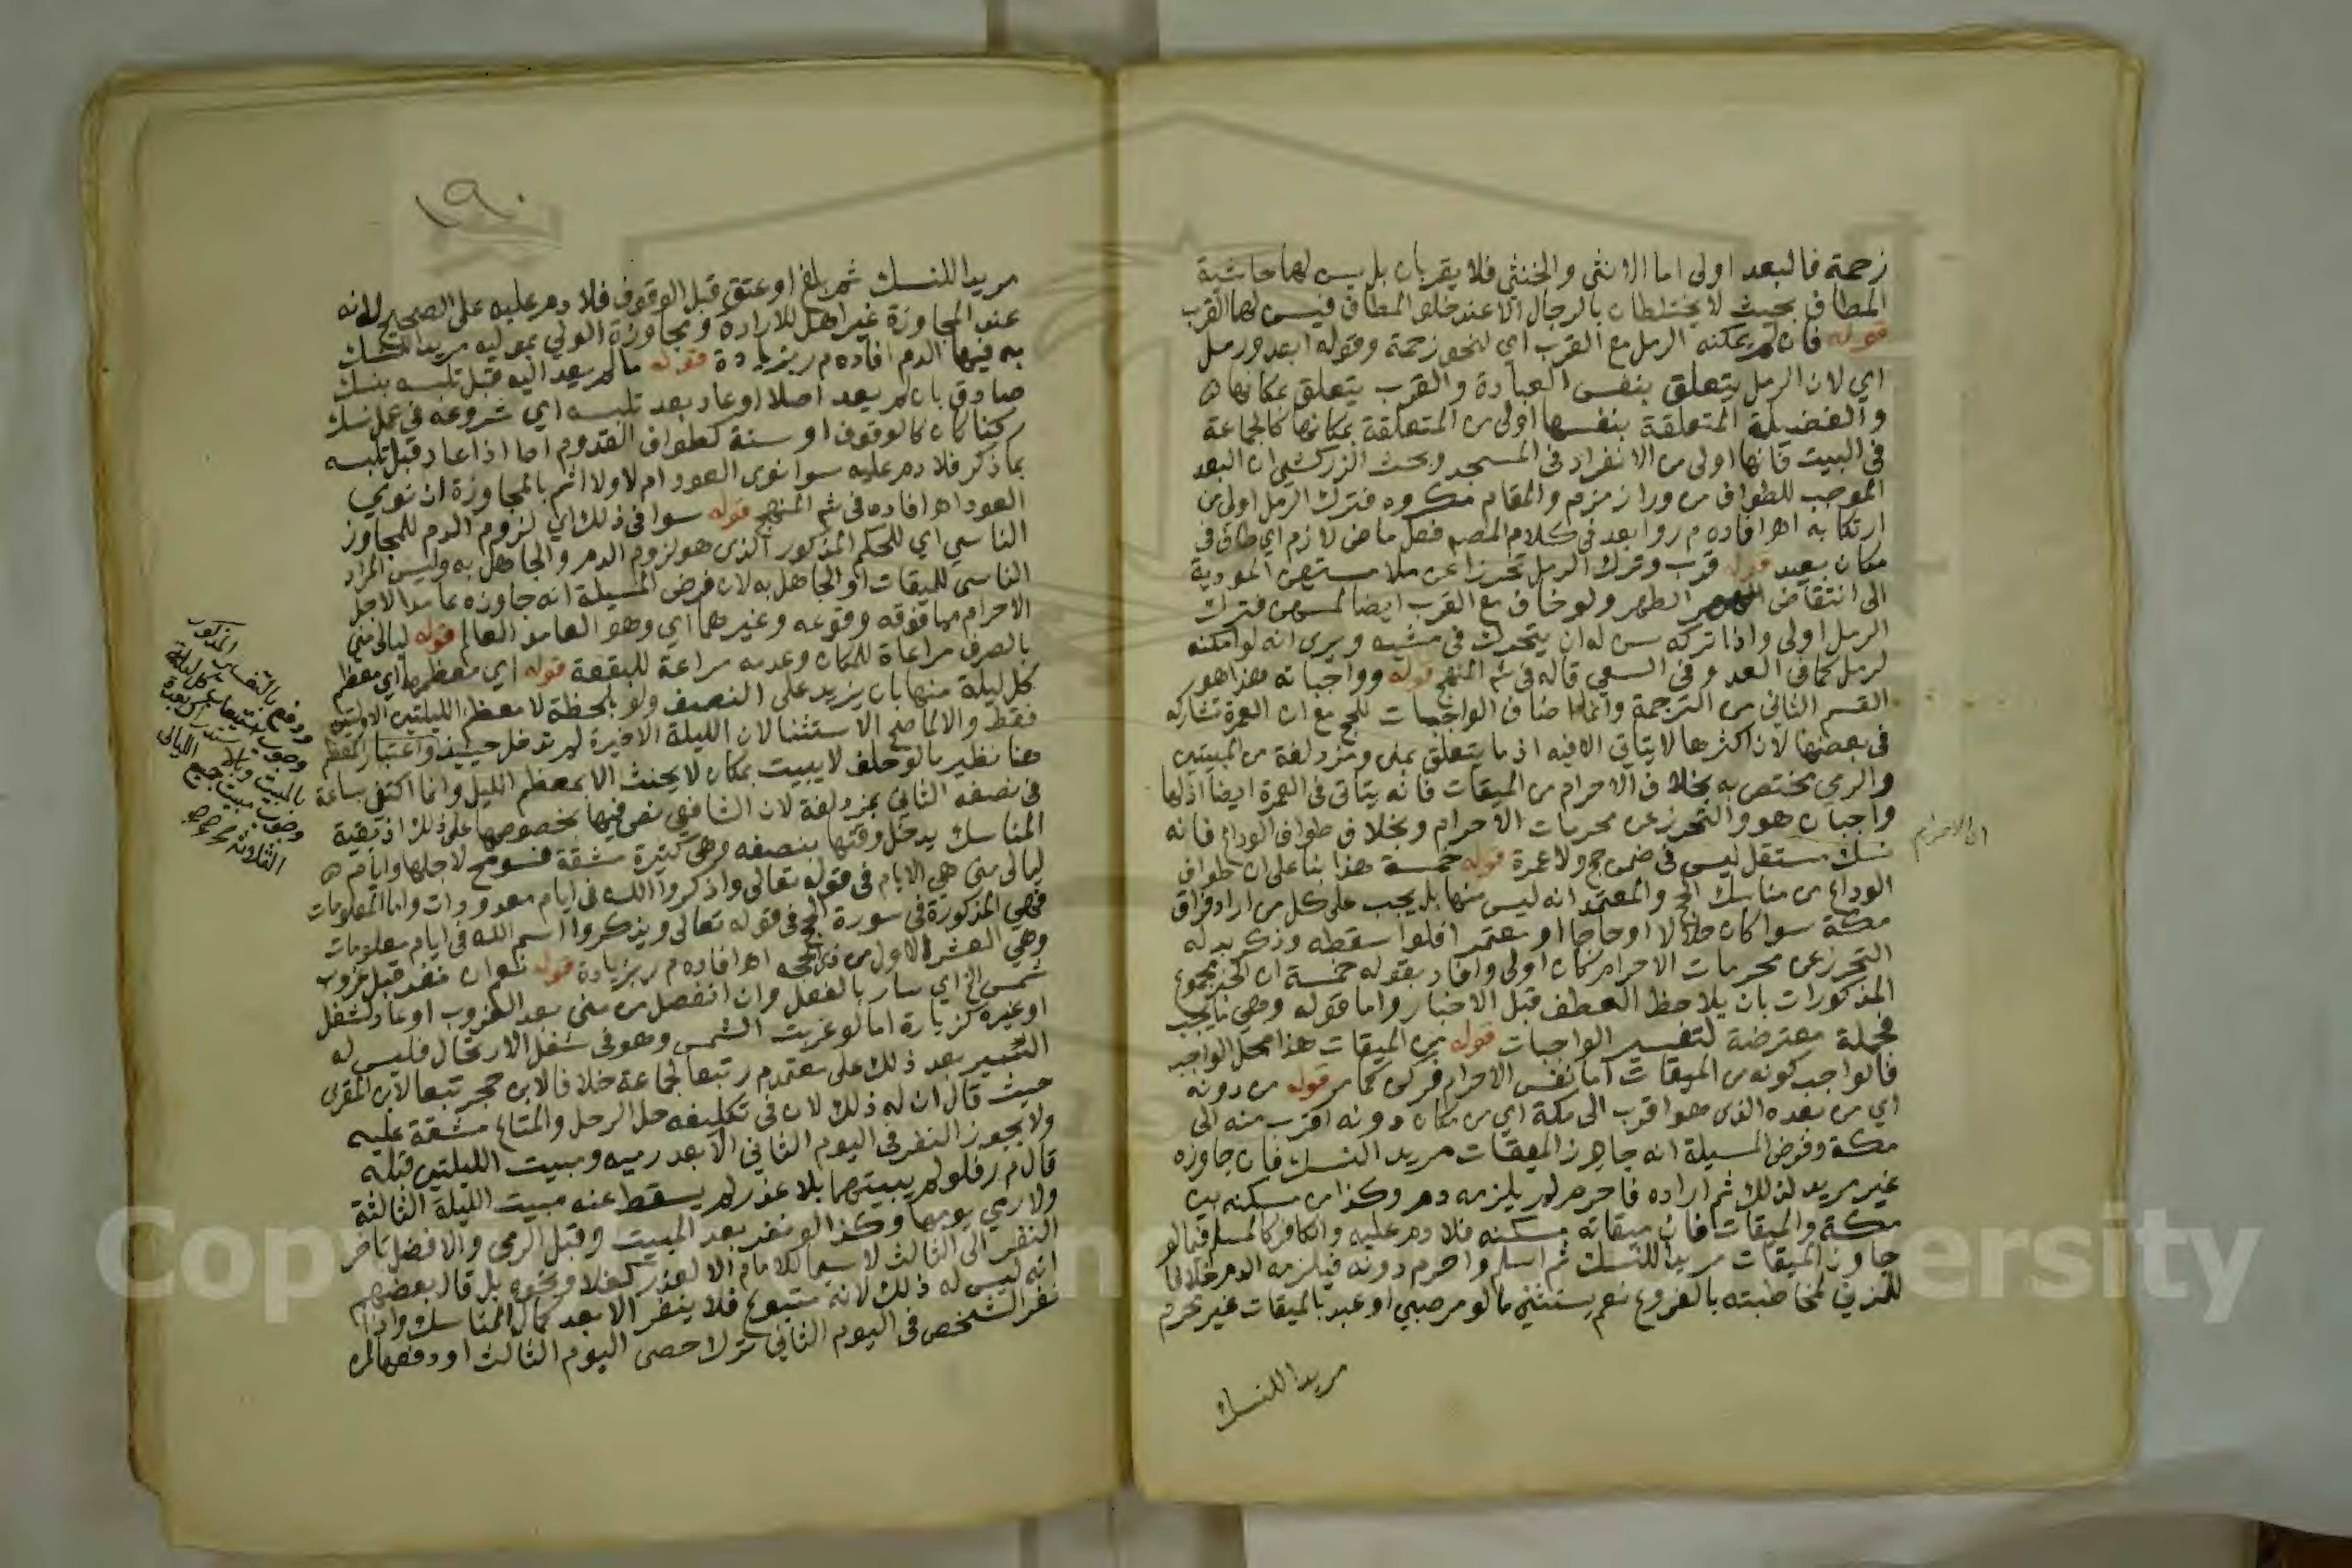 زحمة فالبعد اولى اما الانثى والخنثى فلا يقربان بل يسن لهما حاشية
المطاف بحيث لا يختلطان بالرجال الا عند خلو المطاف فيسن لهما القرب
قوله فان لم يمكنه الرمل مع القرب اي لنحو زحمة وقوله ابعد ورمل
اي لان الرمل يتعلق بنفس العبادة والقرب يتعلق بمكانها
والفضيلة المتعلقة بنفسها اولى من المتعلقة بمكانها كالجماعة
في البيت فانها اولى من الانفراد في المسجد وبحث الزركشي ان البعد
الموجب للطواف من ورا زمزم والمقام مكروه فترك الرمل اولى من
ارتكابه اهـ افاده م ر وابعد في كلام المصـ فعل ماض لازم اي طاف في
مكان بعيد قوله قرب وترك الرمل تحرزا عن ملامستهن المودية
الى انتقاض الطهر ولو خاف مع القرب ايضا لمسهن فترك
الرمل اولى واذا تركه سن له ان يتحرك في مشيه ويرى انه لو امكنه
لرمل كما في العدو في السعي قاله في شم المنهج قوله وواجباته هذا هو
القسم الثاني من الترجمة وانما اضاف الواجبات للحج مع ان العمرة تشاركه
في بعضها لان اكثرها لا يتاتى الا فيه اذ ما يتعلق بمنى ومزدلفة من المبيتين
والرمي مختص به بخلاف الاحرام من الميقات فانه يتاتى في العمرة ايضا اذ لها
واجبان هو والتحرز عن محرمات الاحرام وبخلاف طواف الوداع فانه
نسك مستقل ليس في ضمن حج ولا عمرة قوله خمسة هذا بنا على ان طواف
الوداع من مناسك الحج والمعتمد انه ليس منها بل يجب على كل من اراد فراق
مكة سوا كان حلالا او حاجا او معتمر افلو اسقطه وذكر بدله
التحرز عن محرمات الاحرام كان اولى وافاد بقوله خمسة ان الخبر مجموع
المذكورات بان يلاحظ العطف قبل الاخبار واما قوله وهي ما يجب
فجملة معترضة لتفسير الواجبات قوله من الميقات هذا محل الواجب
فالواجب كونه من الميقات اما نفس الاحرام فركن كما مر قوله من دونه
اي من بعده الذي هو اقرب الى مكة اي من مكان دونه اقرب منه الى
مكة وفرض المسيلة انه جاوز الميقات مريد النسك فان جاوزه
غير مريد لذلك ثم اراده فاحرم لم يلزمه دم وكذا من مسكنه بين
مكة والميقات فان ميقاته مسكنه فلا دم عليه والكافر كالمسلم فيما لو
جاوز الميقات مريدا للنسك ثم اسلم واحرم دونه فيلزمه الدم خلافا
للمزني لمخاطبته بالفروع نعم يستثنى ما لو مر صبي او عبد بالميقات غير محرم
مريدا للنسك
الى الاحرام
١٩٠
مريدا للنسك ثم بلغ او عتق قبل الوقوف فلا دم عليه على الصحيح لانه
عند المجاوزة غير اهل للارادة ومجاوزة الولي بموليه مريدا للنسك
به فيها الدم افاده م ر بزيادة قوله ما لم يعد اليه قبل تلبسه بنسك
صادق بان لم يعد اصلا او عاد بعد تلبسه اي شروعه في عمل نسك
ركنا كان كالوقوف او سنة كطواف القدوم اما اذا عاد قبل تلبسه
بما ذكر فلا دم عليه سوا نوى العود ام لا ولا اثم بالمجاوزة ان نوى
العود اهـ افاده في شم المنهج قوله سوا في ذلك اي لزوم الدم للمجاوز
الناسي اي للحكم المذكور الذي هو لزوم الدم والجاهل به وليس المراد
الناسي للميقات او الجاهل به لان فرض المسيلة انه جاوزه عامدا لاجل
الاحرام مما فوقه وقوعه وغيرهما اي وهو العامد العالم قوله ليالي منى
بالصرف مراعاة للمكان وعدمه مراعاة للبقعة قوله اي معظمها اي معظم
كل ليلة منها بان يزيد على النصف ولو بلحظة لا معظم الليلتين الاوليتين
فقط والا لما صح الاستثنا لان الليلة الاخيرة لم تدخل حينيذ واعتبار المعظم
هنا نظير ما لو حلف لا يبيت بمكان لا يحنث الا بمعظم الليل وانما اكتفى بساعة
في نصفه الثاني بمزدلفة لان الشافعي نص فيها بخصوصها على ذلك اذ بقية
المناسك يدخل وقتها بنصفه وهي كثيرة مشقة فسومح لاجلها وايام
ليالي منى هي الايام في قوله تعالى واذكروا الله في ايام معدودات واما المعلومات
فهي المذكورة في سورة الحج في قوله تعالى ويذكروا اسم الله في ايام معلومات
وهي العشر الاول من ذي الحجة اهـ افاده م ر بزيادة قوله نعم ان نفر قبل غروب
شمس الخ اي سار بالفعل وان انفصل من منى بعد الغروب او عاد لشغل
او غيره كزيارة اما لو غربت الشمس وهو في شغل الارتحال فليس له
السير بعد ذلك على معتمد م ر تبعا لجماعة خلافا لابن حجر تبعا لابن المقرى
حيث قال ان له ذلك لان في تكليفه حل الرحل والمتاع مشقة عليه
ولا يجوز النفر في اليوم الثاني الا بعد رميه ومبيت الليلتين قبله
قال م ر فلو لم يبيتهما بلا عذر لم يسقط عنه مبيت الليلة الثالثة
ولا رمي يومها وكذا لو نفر بعد المبيت وقبل الرمي والافضل تاخر
النفر الى الثالث لا سيما للامام الا لعذر كغلا ونحوه بل قال بعضهم
انه ليس له ذلك لانه متبوع فلا ينفر الا بعد كمال المناسك واذا
نفر الشخص في اليوم الثاني ترك حصى اليوم الثالث او دفعها لمن
ودفع بالتفسير المذكور
وجوب استيعاب كل ليلة
بالمبيت
وجوب مبيت جميع الليالي
الثلاثة
Cop University